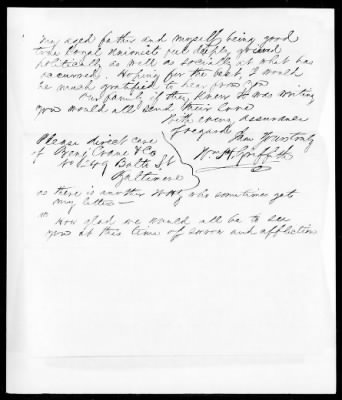 my aged father and myself, being good
true loyal Unionist, yet deeply grieved
politically as well as socially at what has
occurred. Hoping for the best, I would
be much gratified to hear from you
Our family if they knew I was writing
you would all send their love
With every assurance
of regard
Yours truly
Wm H. Griffith
Please direct care
of Benj Crane & Co
No 149 Balto St
Baltimore
as there is another WHG who sometimes gets
my letters —
How glad we would all be to see
you at this time of sorrow and affliction